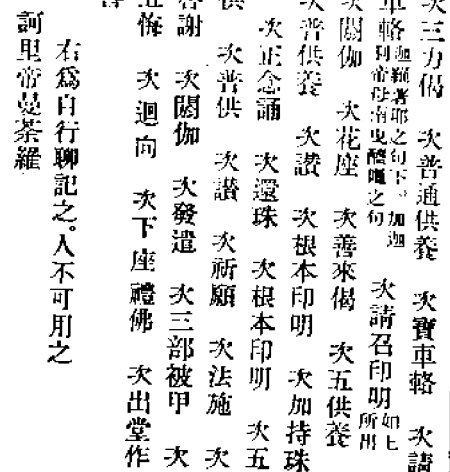 次三力偈 次普通供養 次寶車輅 次請
車輅 著耶之句下。加迦 利帝母 曳醯呬之句 次請召印明 如上所出
次閼伽 次花座 次善來偈 次五供養
次普供養 次讚 次根本印明 次加持珠
次正念誦 次還珠 次根本印明 次五
供 次普供 次讚 次祈願 次法施 次
謝 次閼伽 次發遣 次三部被甲 次
悔 次迴向 次下座禮佛 次出堂作
右爲自行聊記之。人不可用之
訶里帝曼荼羅